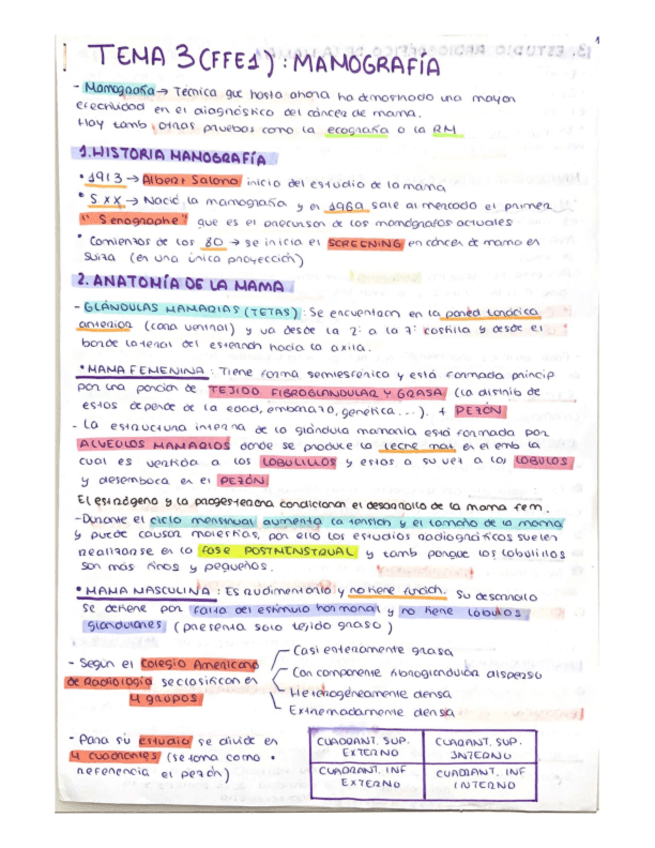 1
TEMA 3 (FFE1): MAMOGRAFÍA
- Mamografía → Técnica que hasta ahora ha demostrado una mayor
efectividad en el diagnóstico del cáncer de mama.
Hay tamb otras pruebas como la ecografía o la RM
1. HISTORIA MAMOGRAFÍA
• 1913 → Albert Salomo inicio del estudio de la mama
• S XX → Nació la mamografía y en 1969 sale al mercado el primer
"Senographe" que es el precursor de los mamógrafos actuales
• Comienzos de los 80 → se inicia el SCREENING en cáncer de mama en
Suiza (en una única proyección)
2. ANATOMÍA DE LA MAMA
- GLÁNDULAS MAMARIAS (TETAS): Se encuentran en la pared torácica
anterior (cara ventral) y va desde la 2ª a la 7ª costilla y desde el
borde lateral del esternón hacia la axila.
• MAMA FEMENINA: Tiene forma semiesférica y está formada princip
por una porción de TEJIDO FIBROGLANDULAR Y GRASA (la distrib de
estos depende de la edad, embarazo, genética...). + PEZÓN
- La estructura interna de la glándula mamaria está formada por
ALVEOLOS MAMARIOS donde se produce la leche mat en el emb la
cual es vertida a los LOBULILLOS y estos a su vez a los LOBULOS
y desemboca en el PEZÓN
El estrógeno y la progesterona condicionan el desarrollo de la mama fem.
- Durante el ciclo menstrual aumenta la tensión y el tamaño de la mama
y puede causar molestias, por ello los estudios radiográficos suelen
realizarse en la fase POSTMENSTRUAL y tamb porque los lobulillos
son más finos y pequeños.
• MAMA MASCULINA: Es rudimentario y no tiene función. Su desarrollo
se detiene por falta del estímulo hormonal y no tiene lobulos
glandulares (presenta solo tejido graso)
- Según el Colegio Americano
de Radiología se clasifican en
4 grupos
Casi enteramente grasa
Con componente fibroglandular disperso
Heterogéneamente densa
Extremadamente densa
- Para su estudio se divide en
4 cuadrantes (se toma como
referencia el pezón)
CUADRANT. SUP. EXTERNO
CUADRANT. SUP. INTERNO
CUADRANT. INF EXTERNO
CUADRANT. INF INTERNO